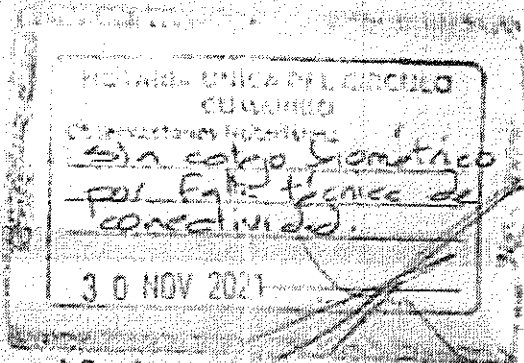 NOTARIA UNICA DEL CIRCULO
Observaciones Notariales
Sin cotejo biometrico
por Falla técnica de
conectividad.
30 NOV 2021